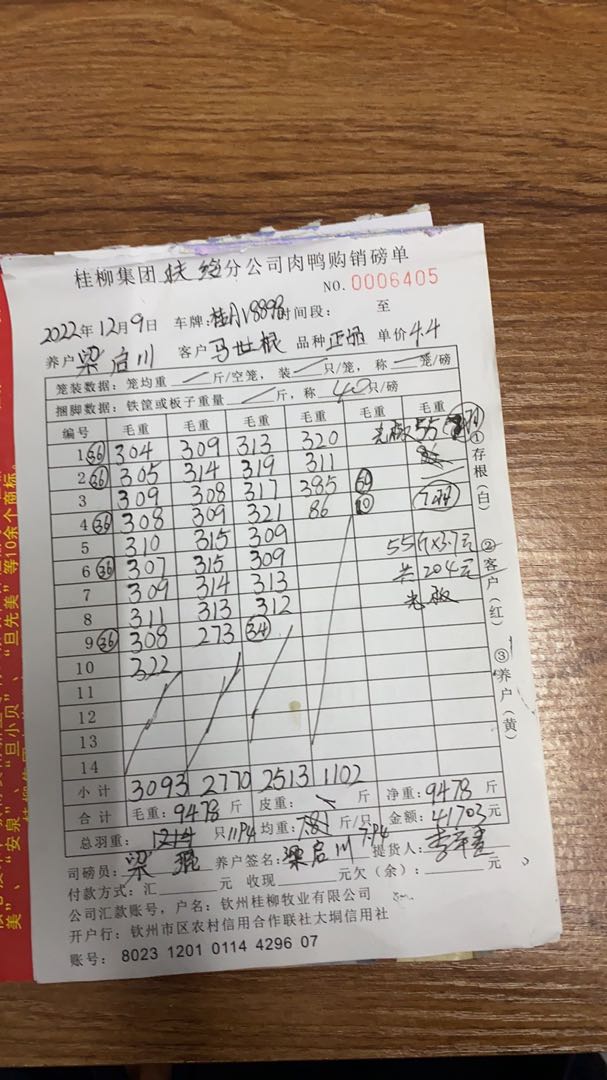 桂柳集团扶绥分公司肉鸭购销磅单
NO.0006405
2022年12月9日 车牌:桂AV8898 时间段: 至
养户 梁启川 客户 马世根 品种 正品 单价 4.4
笼装数据:笼均重 斤/空笼,装 只/笼,称 笼/磅
捆脚数据:铁筐或板子重量 斤,称 40 只/磅
编号 毛重 毛重 毛重 毛重 毛重 毛重
1 36 304 309 313 320 光板 55
2 36 305 314 319 311
3 309 308 317 385
4 36 308 309 321 86 10
5 310 315 309
6 36 307 315 309 共204元
7 309 314 313 光板
8 311 313 312
9 36 308 273 34
10 322
11
12
13
14
小计 3093 2770 2513 1102
合计 毛重:9478斤 皮重: 斤 净重:9478斤
总羽重: 1214 只 1194 均重:7.81 斤/只 7.94 金额:41703元
司磅员: 梁琨 养户签名: 梁启川 提货人:
付款方式:汇 元 收现 元欠(余): 元
公司汇款账号,户名:钦州桂柳牧业有限公司
开户行:钦州市区农村信用合作联社大垌信用社
账号: 8023 1201 0114 4296 07
①存根(白)
②客户(红)
③养户(黄)
"安泉"、"旦小贝"、"旦先美"等10余个商标。